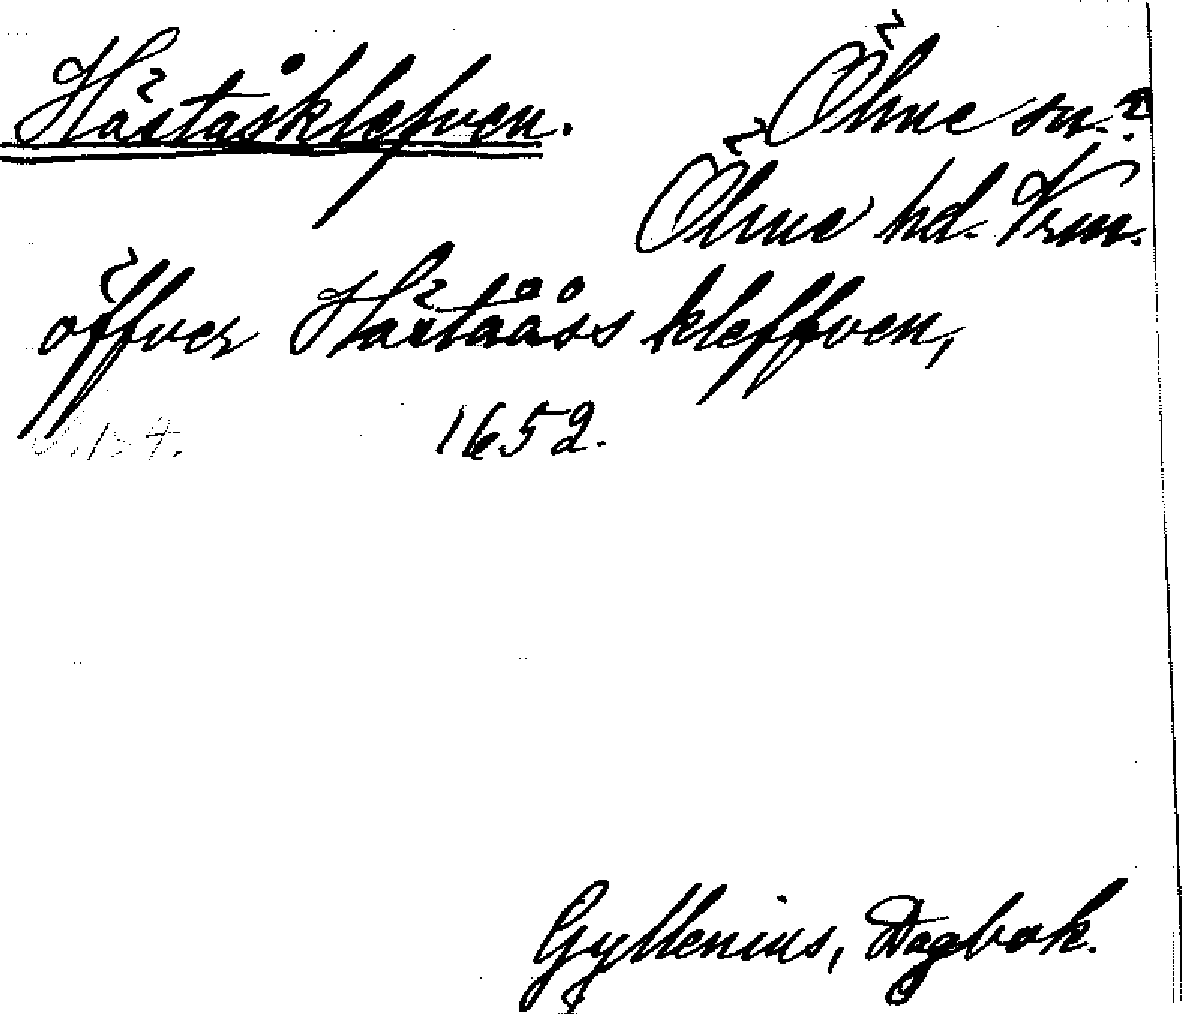 Häståsklefven.
Ölme sn.?
Ölme hd. Vrm.
öffver Hästååss kleffven,
1652.
Gyllenius, Dagbok.